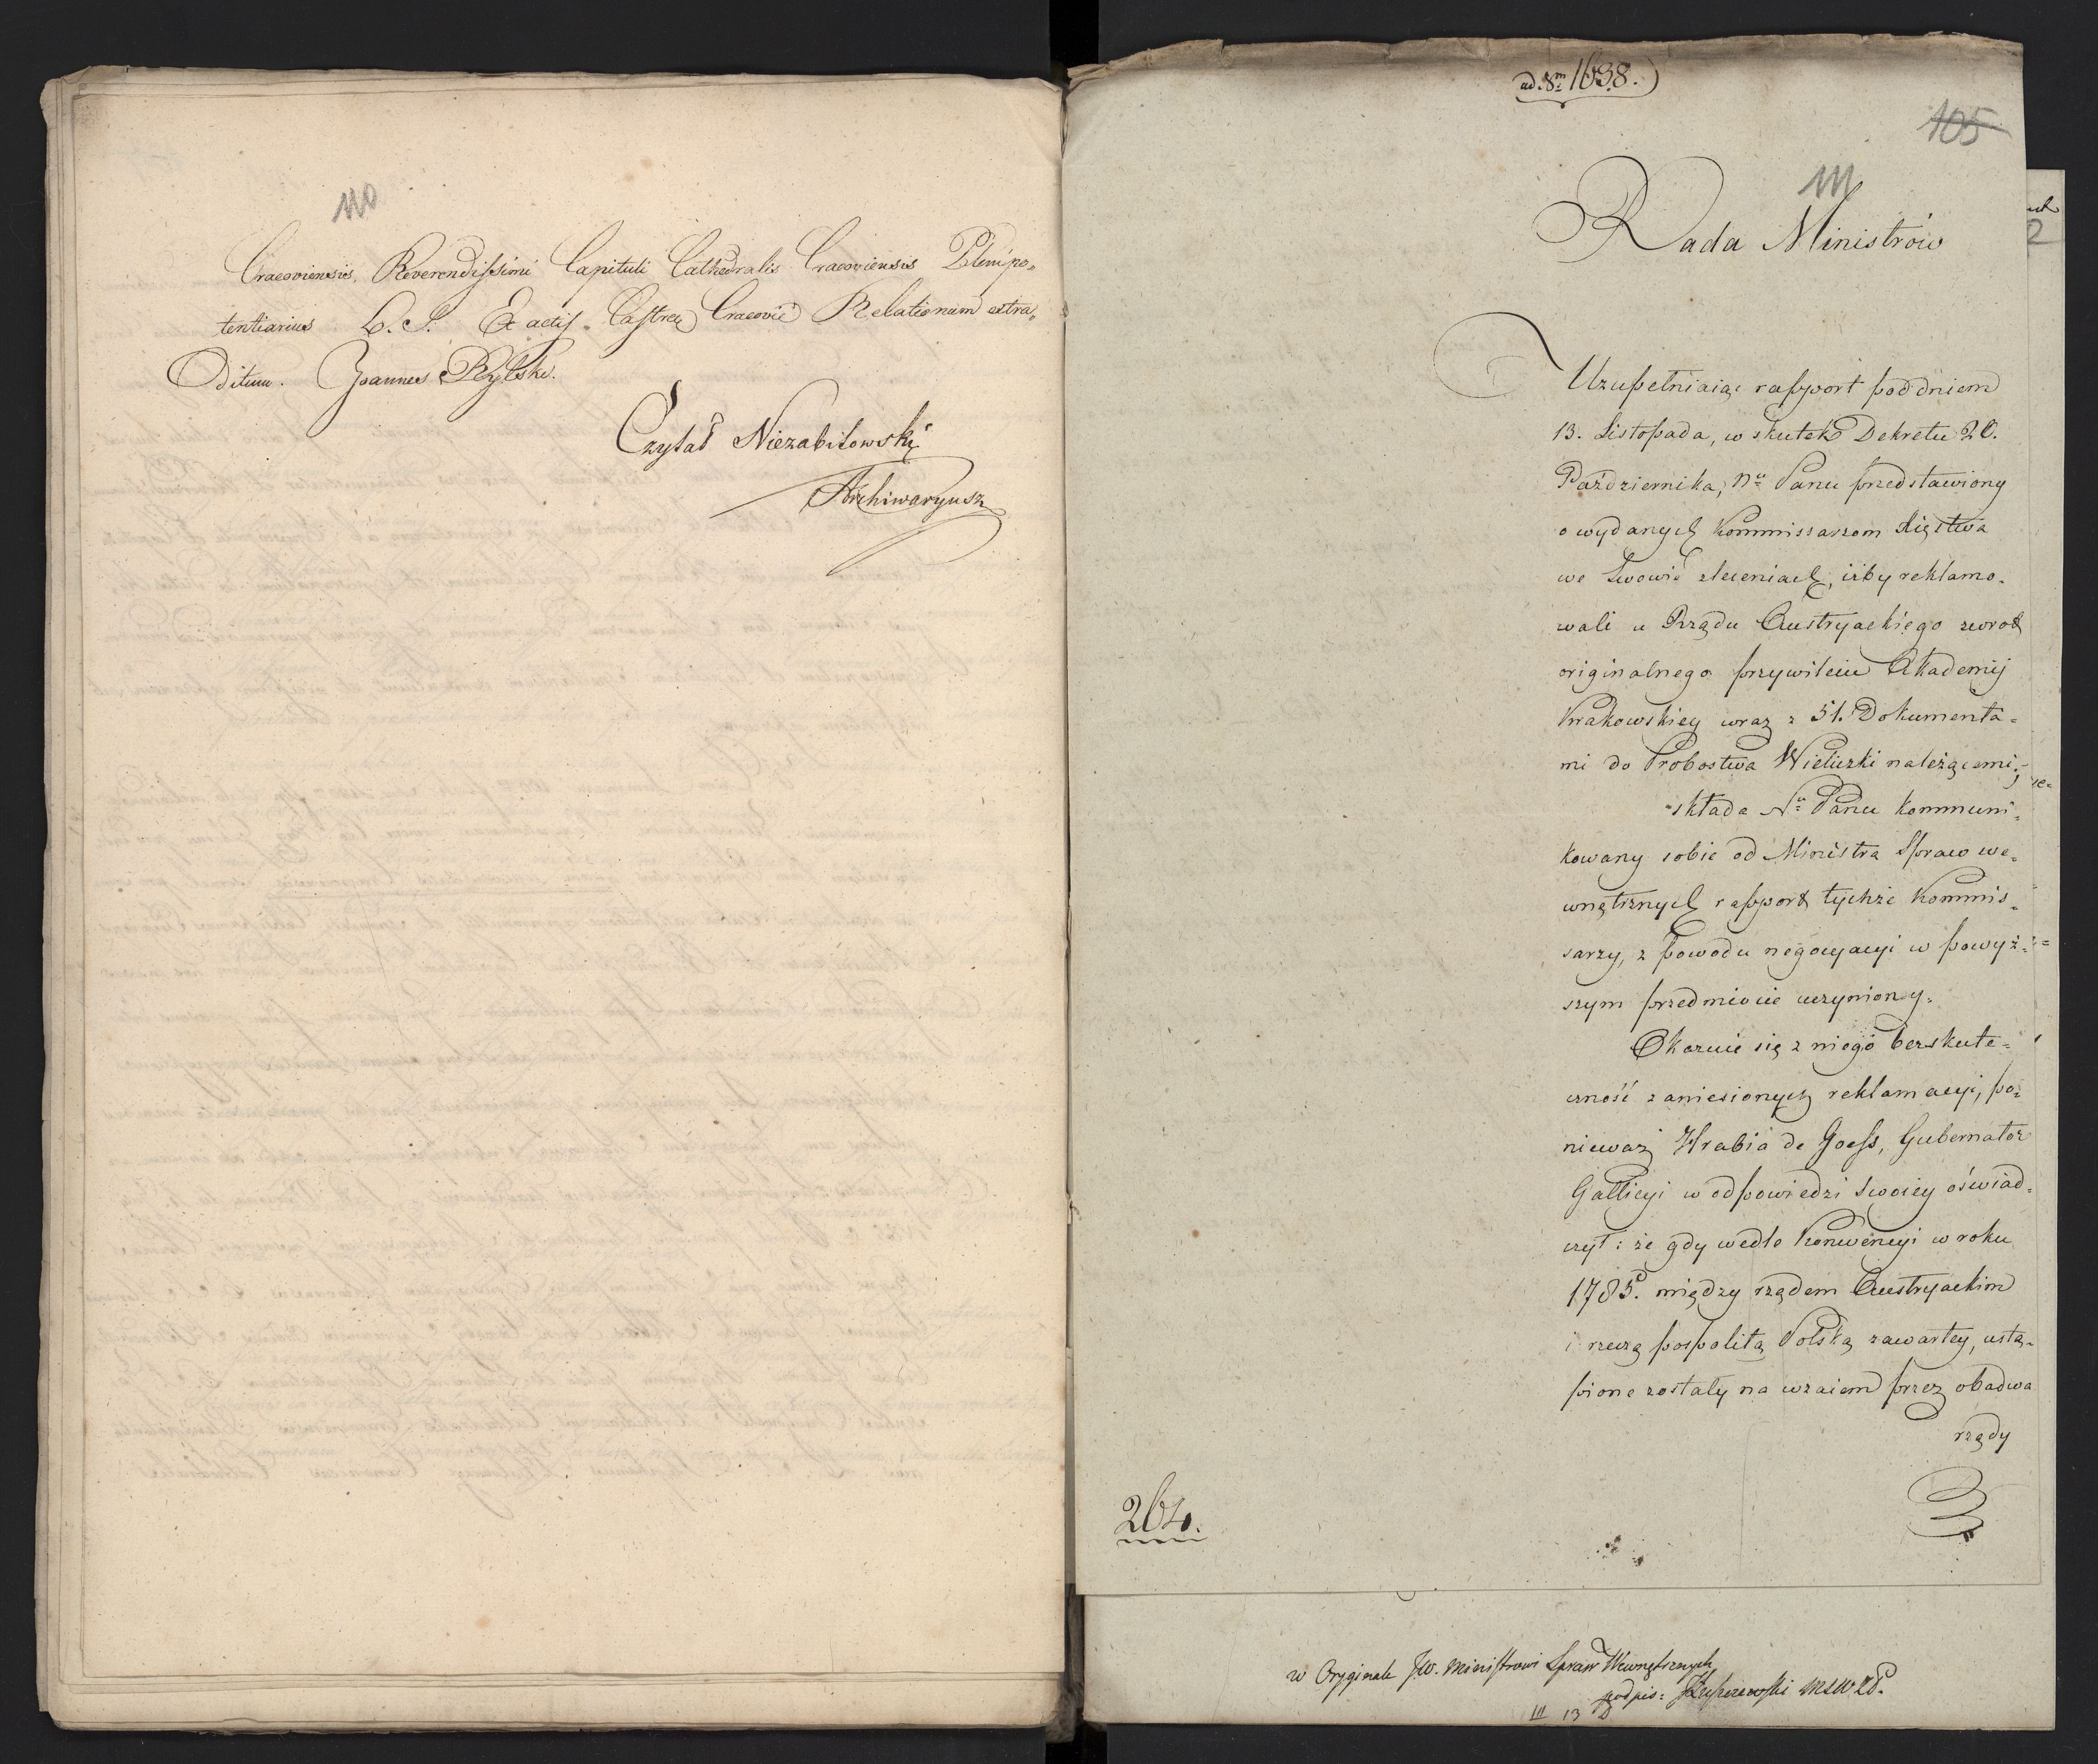 110
Cracoviensis, Reverendissimi Capituli Cathedralis Cracoviensis Plenipo„
tentiarius L. S. Ex actis Castren Cracovie Relationum extra„
ditum. Joannes Rylski.
Czytał Niezabitowski
Archiwaryusz
1638.
105
111
Rada Ministrów
Uzupełniaiąc rapport pod dniem
13. Listopada, w skutek Dekretu 20.
Października, Nu Panu przedstawiony
o wydanych Kommissarzom Xięstwa
we Lwowie zleceniach, iżby reklamo„
wali u Rządu Austryackiego zwrot
originalnego przywileiu Akademij
Krakowskiey wraz z 51. Dokumenta=
mi do Probostwa Wieliczki należącemi,
składa Nu Panu kommuni„
kowany sobie od Ministra Spraw we„
wnętrznych rapport tychże Kommis„
sarzy, z powodu negocyacyi w powyż=
szym przedmiocie uczyniony.
Okazuie się z niego bezskute=
czność zaniesionych reklamacyi, po=
nieważ Hrabia de Goess, Gubernator
Gallicyi w odpowiedzi swoiey oświad„
czył: że gdy wedle Konwencyi w roku
1785. między rządem Austryackim
i rzeczą pospolitą Polską zawartey, ustą„
pione zostały na wzaiem przez obadwa
rządy
264.
w Oryginale JW. Ministrowi Spraw Wewnętrznych
podpis:
III 13
2